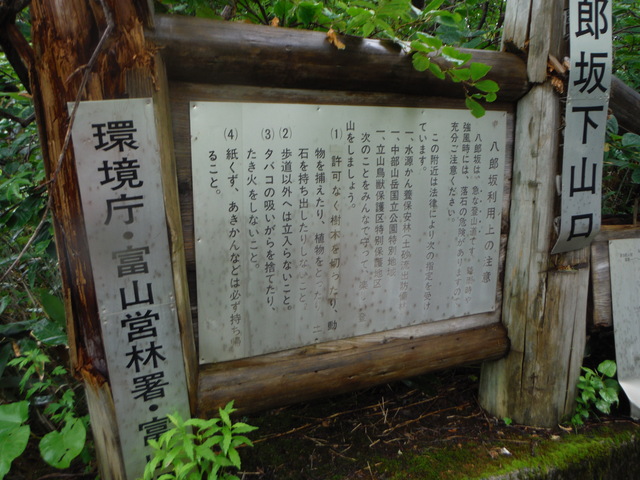 郎坂下山口
八郎坂利用上の主意
八郎坂は、急な登山道です。
強風時には、落石の危険があります
充分ご注意ください。
この附近は法律により次の指定を受け
ています。
一、水源かん養保安林(土砂流出防備
一、中部山岳国立公園特別地域
一、立山鳥獣保護区特別保護地区
次のことをみんなで守って
山をしましょう。
(1) 許可なく樹木を切ったり、動
物を捕えたり、植物を
石を持ち出したりしないこと。
(2) 歩道以外へは立入らないこと。
(3) タバコの吸いがらを捨てたり、
たき火をしないこと。
(4) 紙くず、あきかんなどは必ず持ち
ること。
環境庁・富山営林署・富